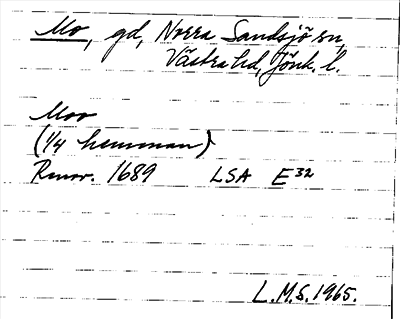 Mo, gd, Norra Sandsjö sn,
Västra hd, Jönk. l.
Moo
(1/4 hemman)
Renov. 1689 LSA E32
L.M.S. 1965.